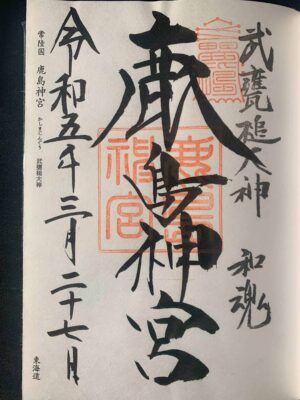 武甕槌大神 和魂
鹿島神宮
鹿島
神宮
令和五年三月二十七日
常陸国 鹿島神宮 かしまじんぐう 武甕槌大神
東海道